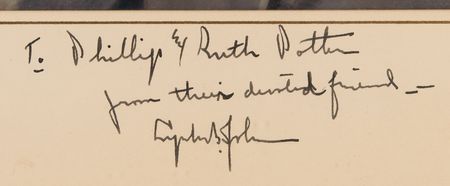 To Phillip & Ruth Potter
from their devoted friend —
Lyndon B. Johnson